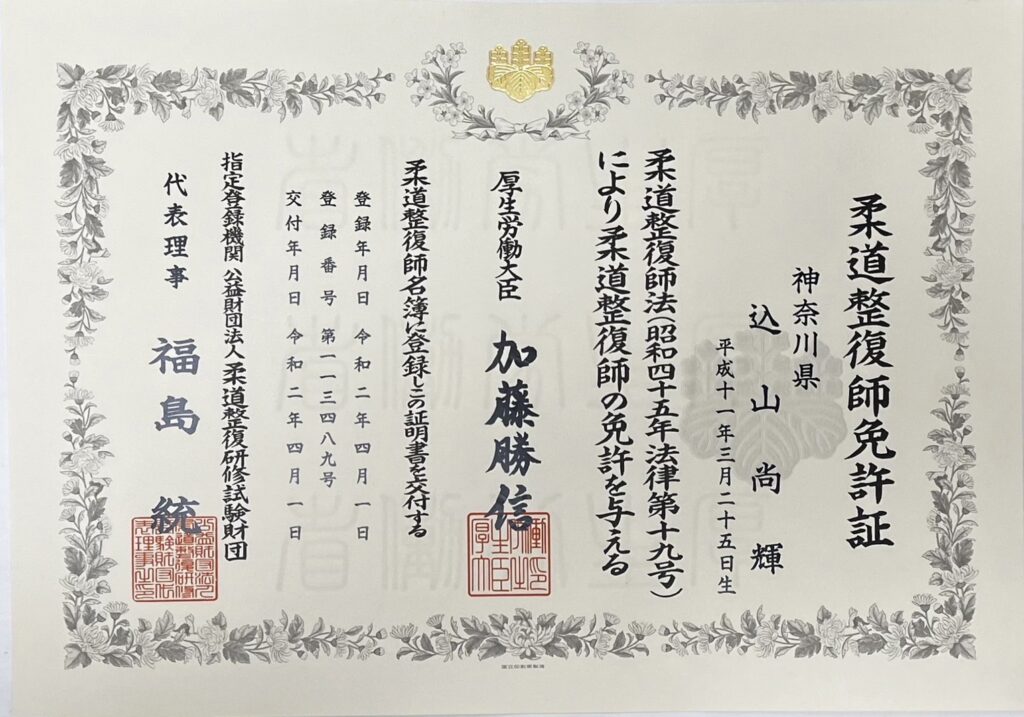 柔道整復師免許証
神奈川県
込山尚輝
平成十一年三月二十五日生
柔道整復師法(昭和四十五年法律第十九号)
により柔道整復師の免許を与える
厚生労働大臣 加藤勝信
柔道整復師名簿に登録しこの証明書を交付する
登録年月日 令和二年四月一日
登録番号 第一一三四八九号
交付年月日 令和二年四月一日
指定登録機関 公益財団法人 柔道整復研修試験財団
代表理事 福島統